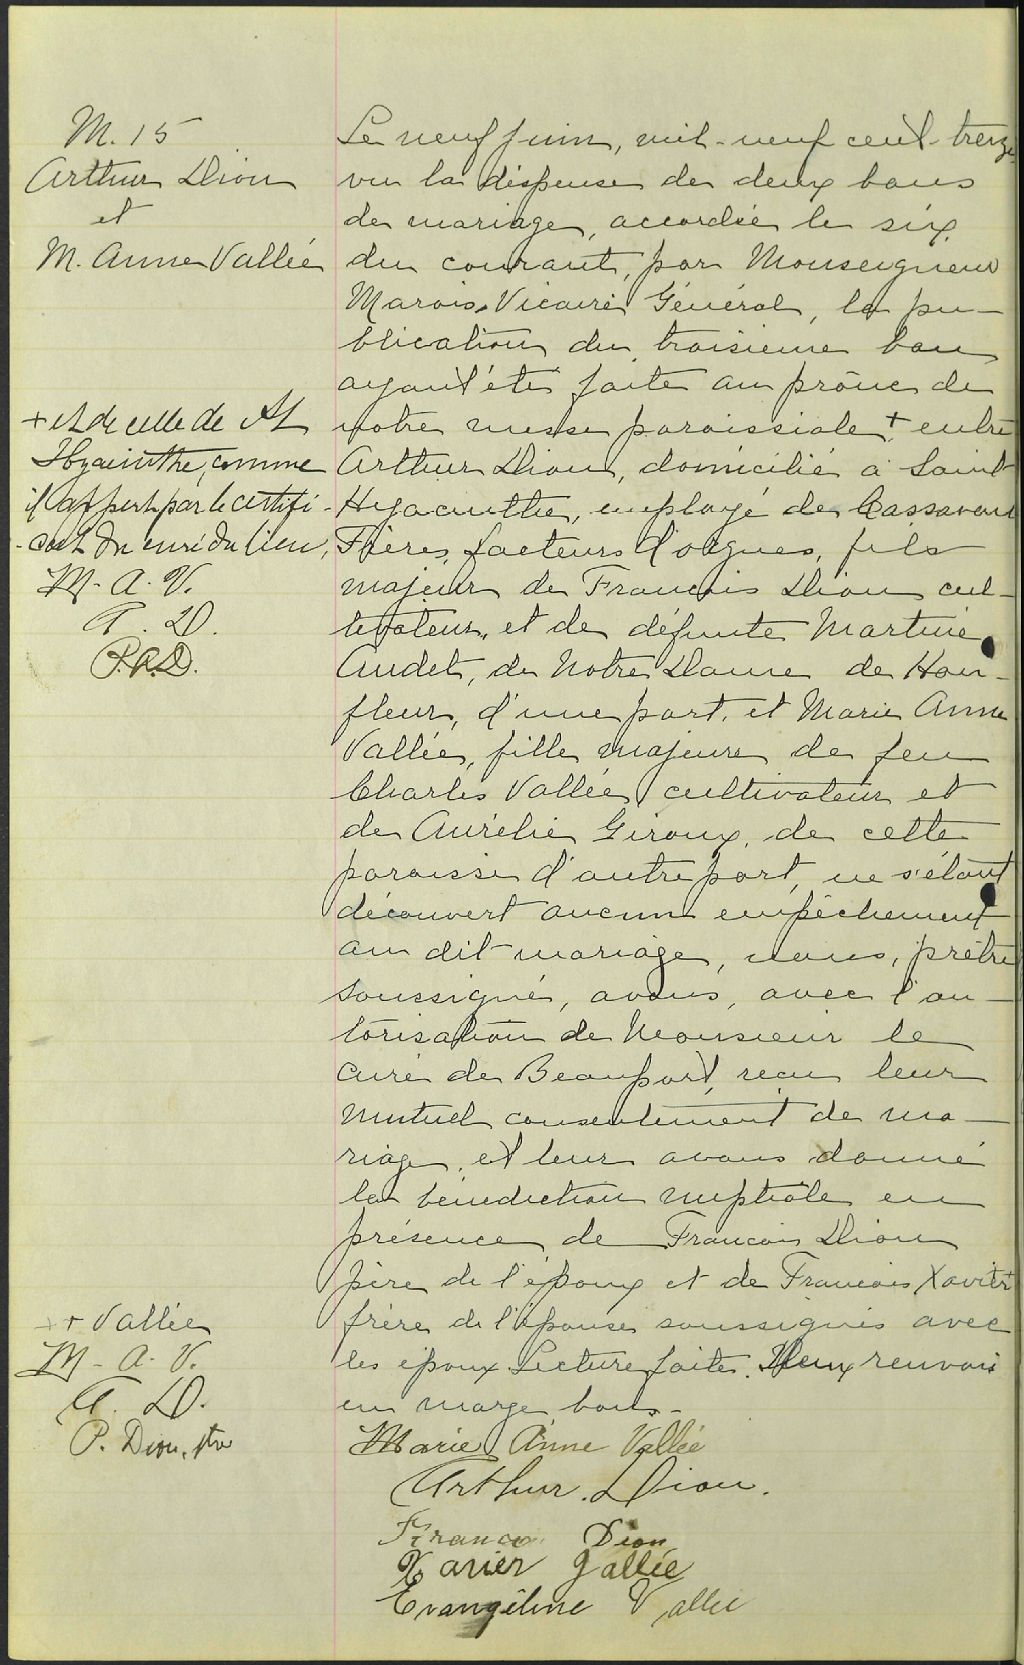 M. 15
Arthur Dion
et
M. Anne Vallée
Le neuf juin, mil-neuf cent-treize
vu la dispense de deux bans
de mariage, accordée le six
du courant, par Monseigneur
Marois, Vicaire Général, la pu-
blication du troisieme ban
ayant été faite au prône de
notre messe paroissiale + entre
Arthur Dion, domicilié à Saint
Hyacinthe, employé de Cassavant
Frères, facteurs d'orgues, fils
majeur de François Dion cul-
tivateur, et de défunte Martine
Audet, de Notre Dame de Hon-
fleur, d'une part, et Marie Anne
Vallée, fille majeure de feu
Charles Vallée, cultivateur et
de Aurélie Giroux, de cette
paroisse d'autre part, ne s'étant
découvert aucun empêchement
au dit mariage, nous, prêtre
soussigné, avons, avec l'au-
torisation de Monsieur le
curé de Beauport, reçu leur
mutuel consentement de ma-
riage, et leur avons donné
la bénédiction nuptiale en
présence de François Dion
père de l'époux et de Francois Xavier
frère de l'épouse soussignés avec
les époux Lecture faite. Deux renvois
en marge bons.
+ et de celle de St
Hyacinthe, comme
il appert par le certifi-
-cat du curé du lieu,
M. A. V.
A. D.
P. A. D.
++ Vallée
M - A. V.
A. D.
P. Dion, ptre
Marie Anne Vallée
Arthur. Dion.
Dion
Xavier Vallée
Evangéline Vallée